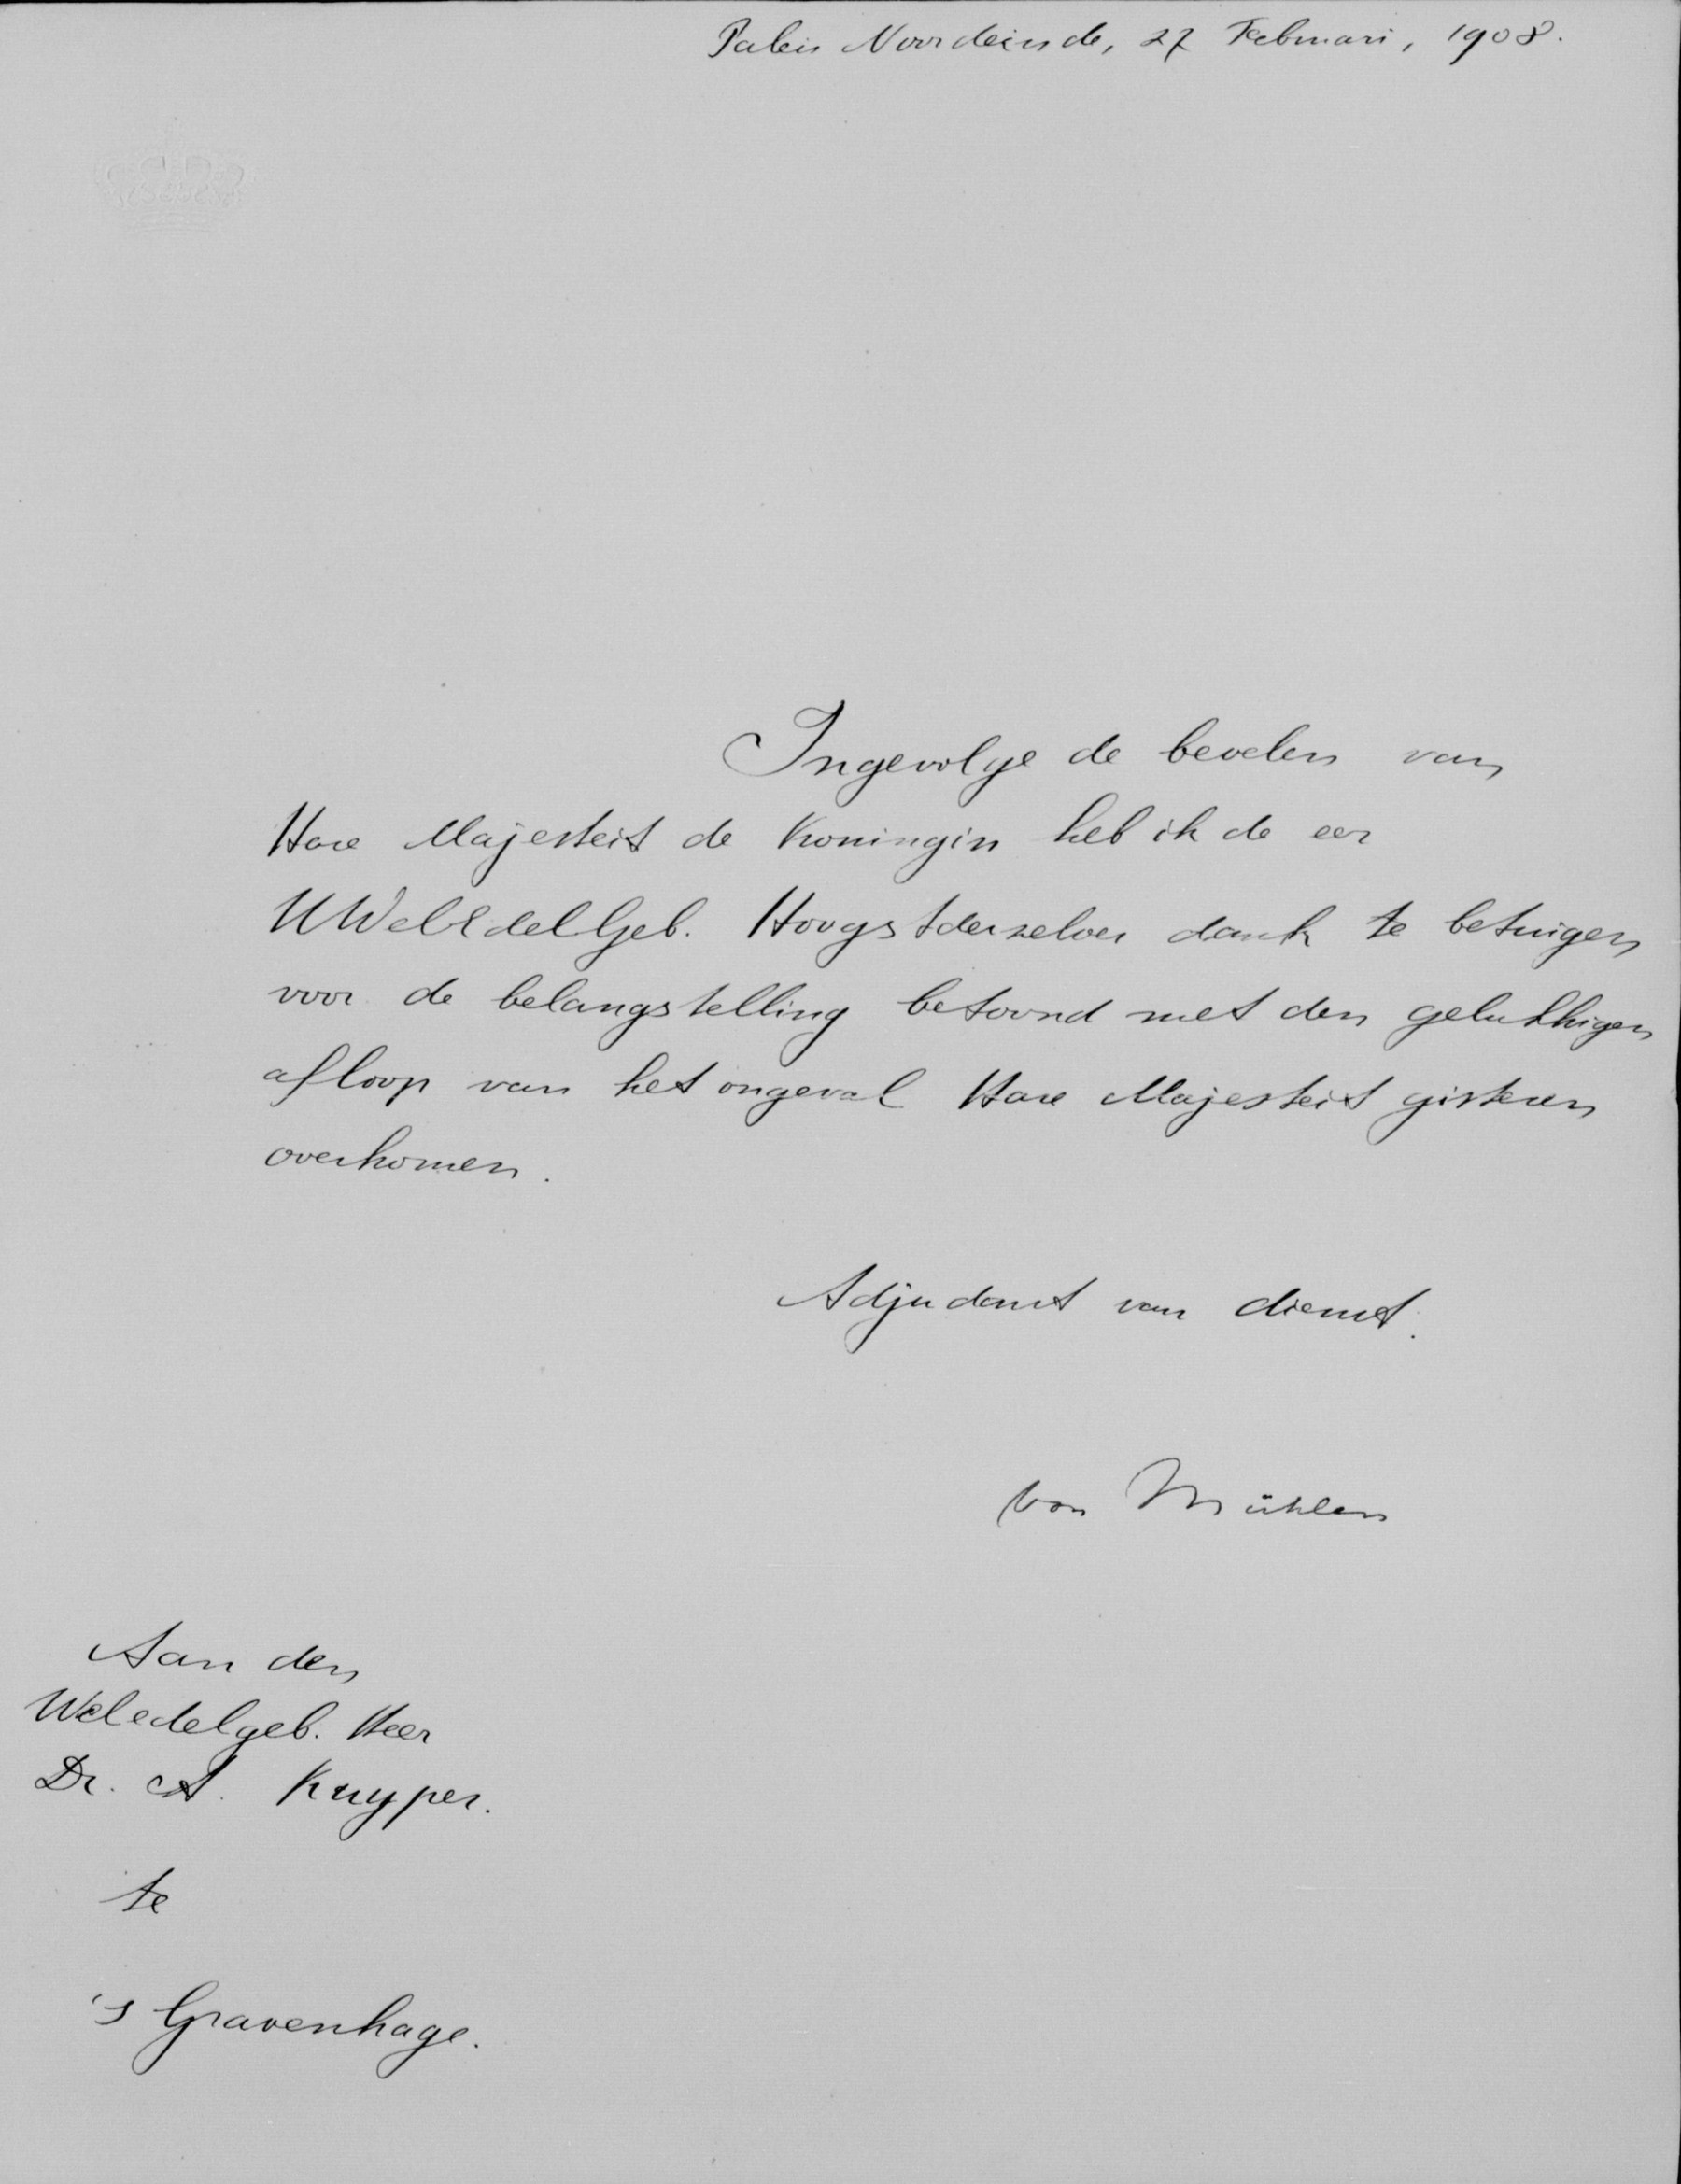 Paleis Noordeinde, 27 Februari, 1908.
Ingevolge de bevelen van
Hare Majesteit de Koningin heb ik de eer
UWelEdelGeb. Hoogstderzelver dank te betuigen
voor de belangstelling betoond met den gelukkigen
afloop van het ongeval Hare Majesteit gisteren
overkomen.
Adjudant van dienst.
von Mühlen
Aan den
Weledelgeb. Heer
Dr. A. Kuyper.
te
's Gravenhage.